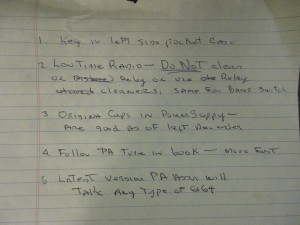 1. Key in left side pocket Case
2. Low Time Radio - Do Not clean
or Relay or use Relay
cleaners, same for Band Switch
3. Original Caps in Power Supply -
Are good as of last December
4. Follow PA Tune in book -
5. Latest version PA will
Take Any Type of